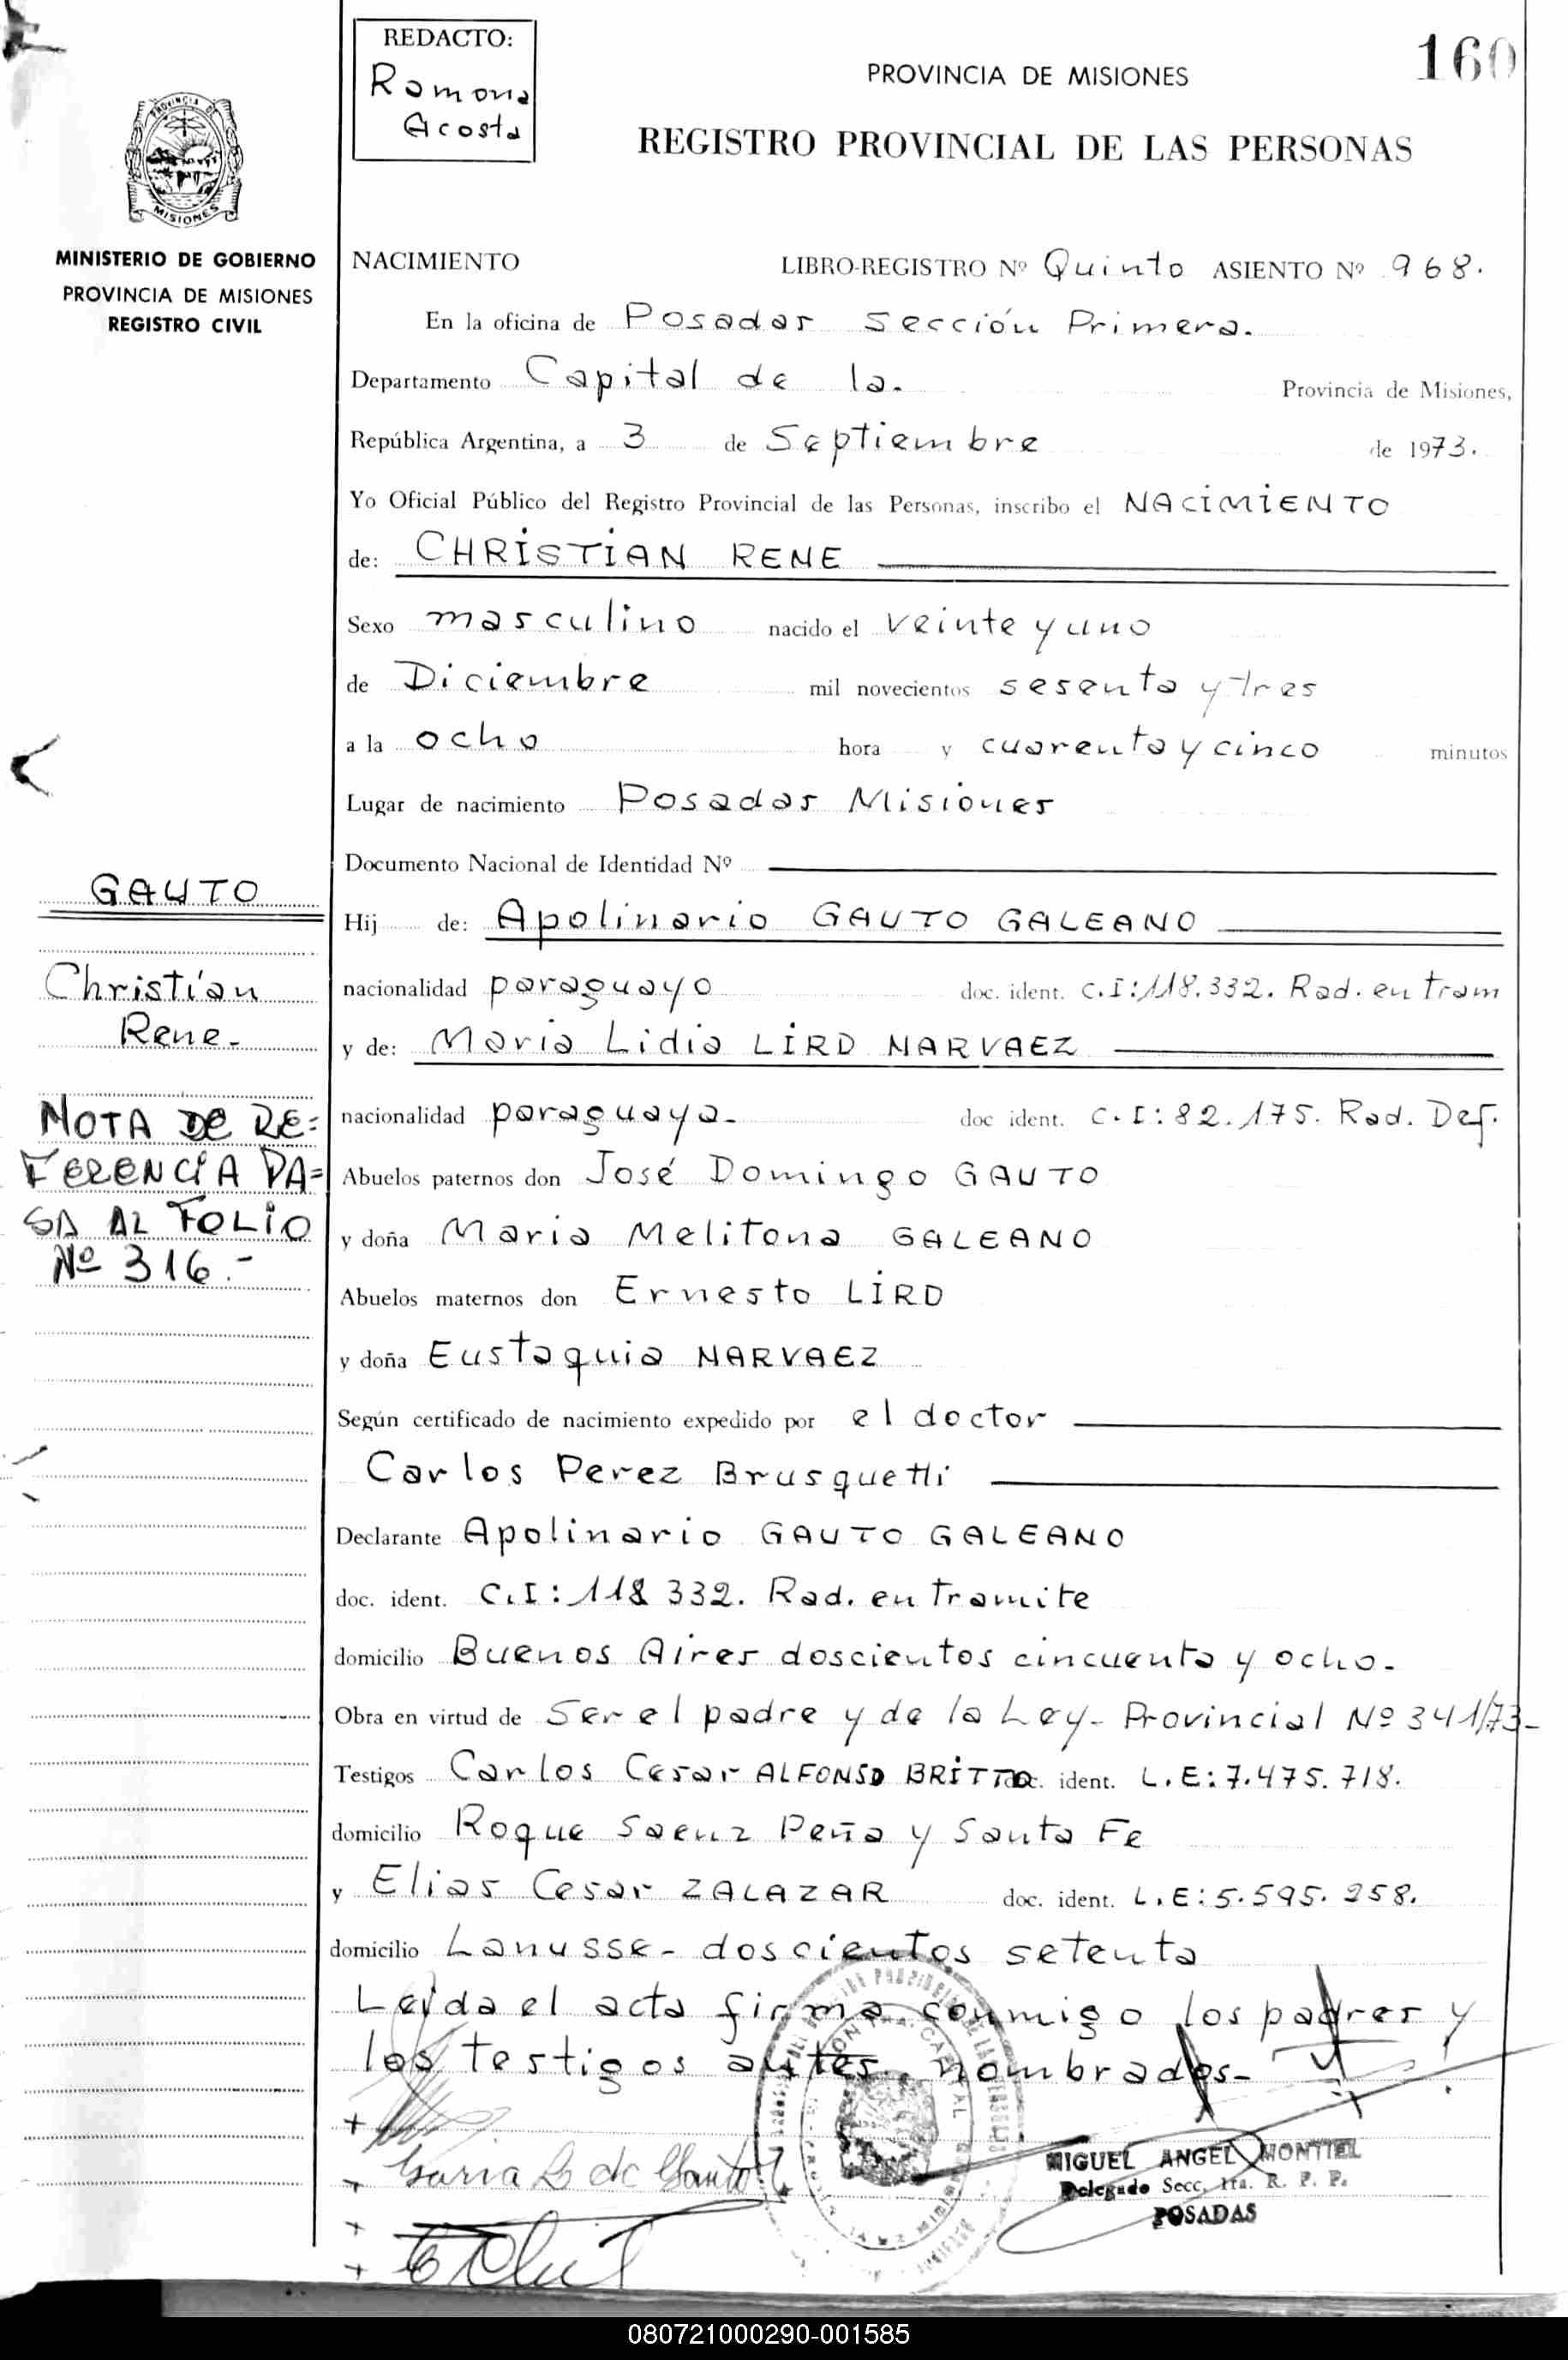 REDACTO:
Ramona
Acosta
160
PROVINCIA DE MISIONES
REGISTRO PROVINCIAL DE LAS PERSONAS
PROVINCIA DE
MISIONES
MINISTERIO DE GOBIERNO
PROVINCIA DE MISIONES
REGISTRO CIVIL
NACIMIENTO LIBRO-REGISTRO Nº Quinto ASIENTO Nº 968.
En la oficina de Posadas Sección Primera.
Departamento Capital de la. Provincia de Misiones,
República Argentina, a 3 de Septiembre de 1973.
Yo Oficial Público del Registro Provincial de las Personas, inscribo el NACIMIENTO
de: CHRISTIAN RENE
Sexo masculino nacido el veinte y uno
de Diciembre mil novecientos sesenta y tres
a la ocho hora y cuarenta y cinco minutos
Lugar de nacimiento Posadas Misiones
Documento Nacional de Identidad Nº
GAUTO
Hij de: Apolinario GAUTO GALEANO
Christian
Rene-
nacionalidad paraguayo doc. ident. C.I:118.332. Rad. en tram
y de: Maria Lidia LIRD NARVAEZ
NOTA DE RE=
FERENCIA PA=
SA AL FOLIO
Nº 316.-
nacionalidad paraguaya- doc ident. C.I:82.175. Rad. Def.
Abuelos paternos don José Domingo GAUTO
y doña Maria Melitona GALEANO
Abuelos maternos don Ernesto LIRD
y doña Eustaquia NARVAEZ
Según certificado de nacimiento expedido por el doctor
Carlos Perez Brusquetti
Declarante Apolinario GAUTO GALEANO
doc. ident. C.I:118 332. Rad. en Tramite
domicilio Buenos Aires doscientos cincuenta y ocho-
Obra en virtud de Ser el padre y de la Ley- Provincial Nº 341/73-
Testigos Carlos Cesar ALFONSO BRITTO doc. ident. L.E:7.475.718.
domicilio Roque Saenz Peña y Santa Fe
y Elias Cesar ZALAZAR doc. ident. L.E:5.595.258.
domicilio Lanusse- doscientos setenta
Leída el acta firma conmigo los padres y
los testigos antes nombrados-
MIGUEL ANGEL MONTIEL
Delegado Secc. 1ra. R. P. P.
POSADAS
080721000290-001585